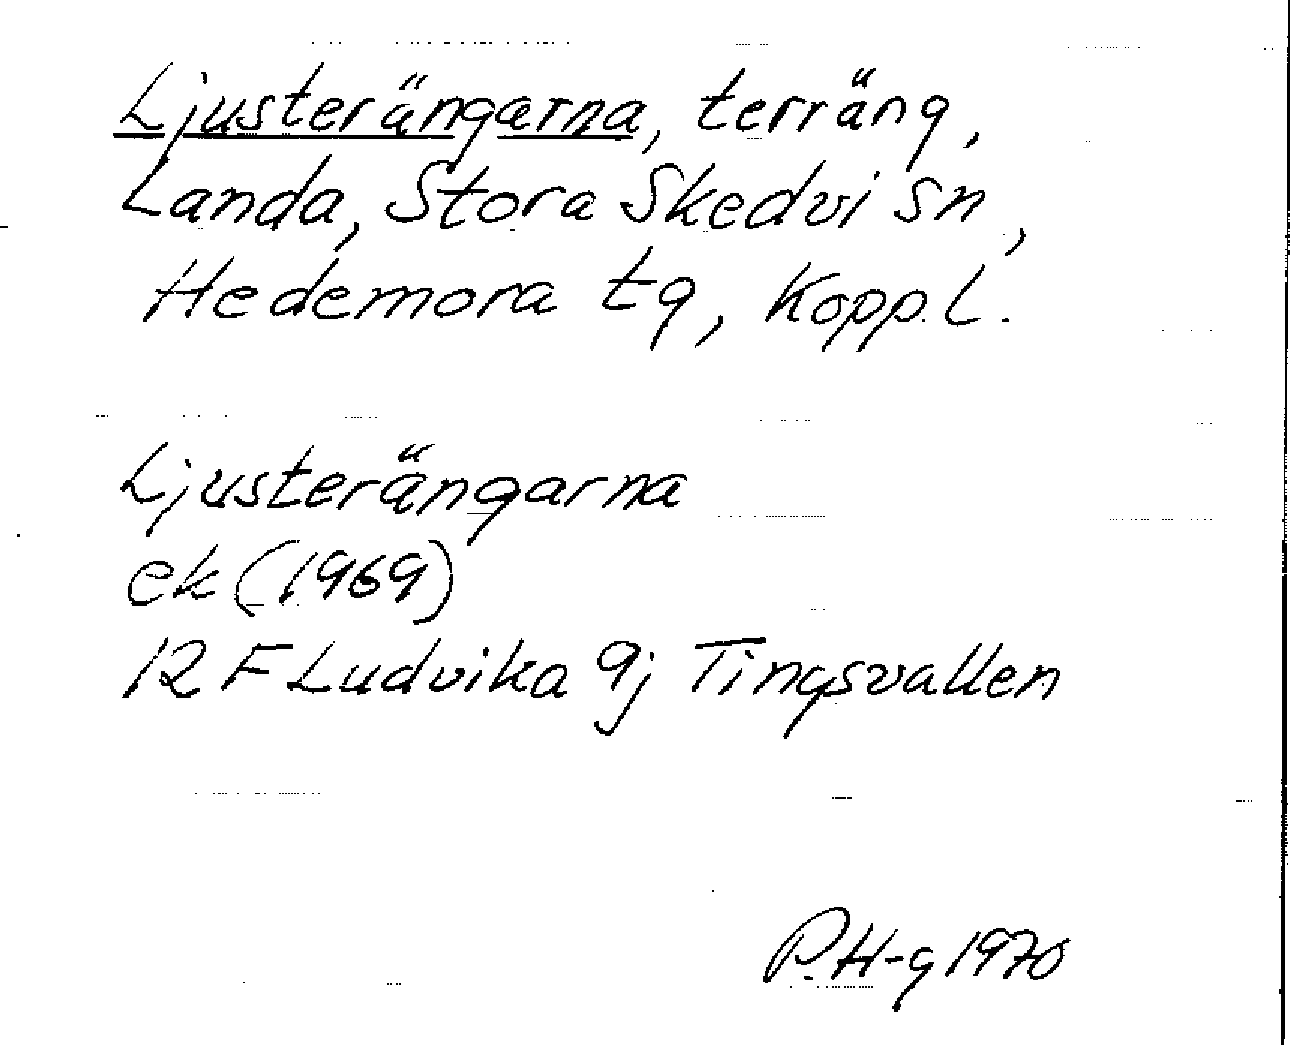 Ljusterängarna, terräng,
Landa, Stora Skedvi Sn,
Hedemora tg, Kopp. L.
Ljusterängarna
ek (1969)
12 F Ludvika 9j Tingsvallen
P. H-g 1970